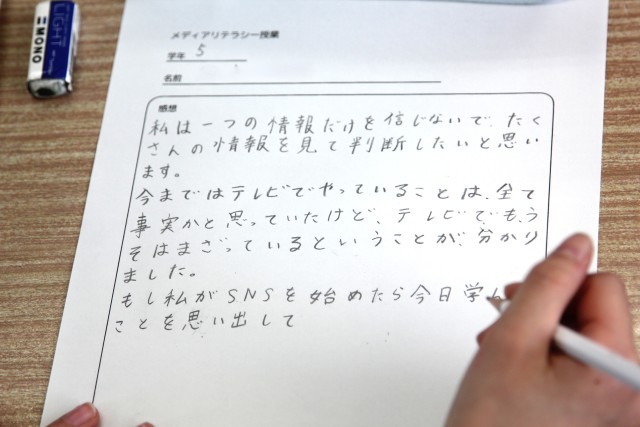 MONO
LIGHT
メディアリテラシー授業
学年 5
名前
感想
私は一つの情報だけを信じないで、たく
さんの情報を見て判断したいと思い
ます。
今まではテレビでやっていることは、全て
事実かと思っていたけど、テレビでも、う
そはまざっているということが、分かり
ました。
もし私がSNSを始めたら今日学ん
ことを思い出して